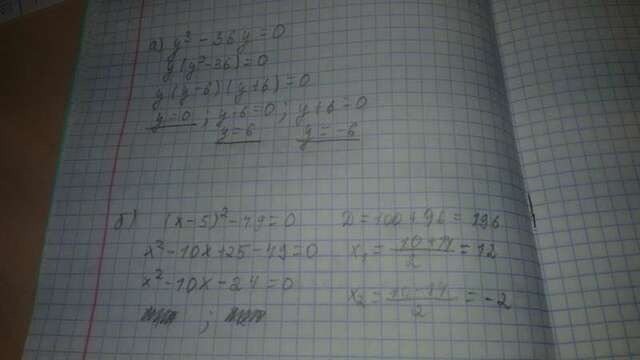 а) y³ - 36y = 0
y(y²-36)=0
y(y-6)(y+6)=0
y=0 ; y-6=0 ; y+6=0
y=6 y=-6
б) (x-5)²-49=0
x²-10x+25-49=0
x²-10x-24=0
D=100+96=196
x₁=(10+14)/2=12
x₂=(10-14)/2=-2